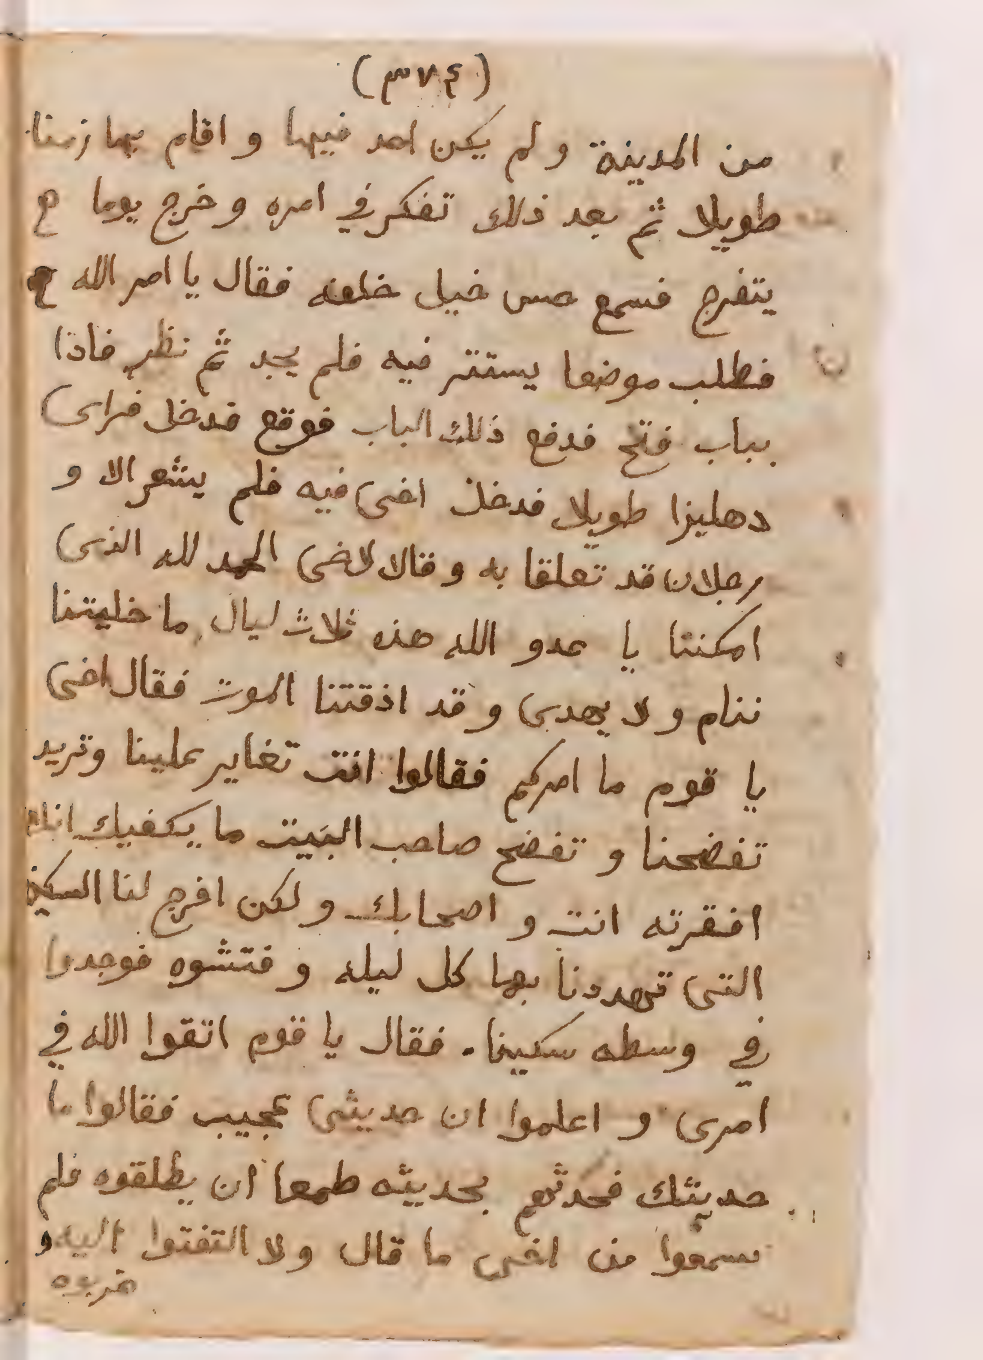 (٣٧٤)
من المدينة و لم يكن احد فيها و اقام بها زمنا
طويلا ثم بعد ذلك تفكر في امره و خرج يوما
يتفرج فسمع حس خيل خلفه فقال يا امر الله
فطلب موضعا يستتر فيه فلم يجد ثم نظر فاذا
بباب فتح فدفع ذلك الباب فوقع فدخل فراى
دهليزا طويلا فدخل اخى فيه فلم يشعر الا و
رجلان قد تعلقا به و قالا لاخى الحمد لله الذى
امكننا يا عدو الله هذه ثلاث ليال ما خليتنا
ننام و لا يهدى و قد اذقتنا الموت فقال اخى
يا قوم ما امركم فقالوا انت تغاير علينا وتريد
تفضحنا و تفضح صاحب البيت ما يكفيك انك
افقرته انت و اصحابك و لكن اخرج لنا السكين
التى تهددنا بها كل ليله و فتشوه فوجدوا
في وسطه سكينا. فقال يا قوم اتقوا الله في
امرى و اعلموا ان حديثى عجيب فقالوا ما
حديثك فحدثهم بحديثه طمعا ان يطلقوه فلم
يسمعوا من اخى ما قال ولا التفتوا اليه و
ضربوه